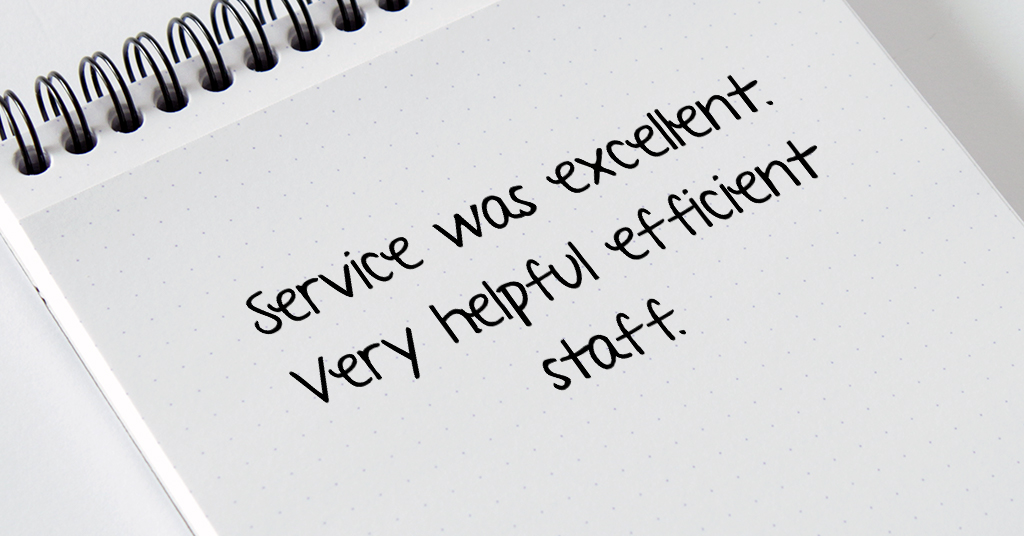 Service was excellent.
Very helpful efficient
staff.